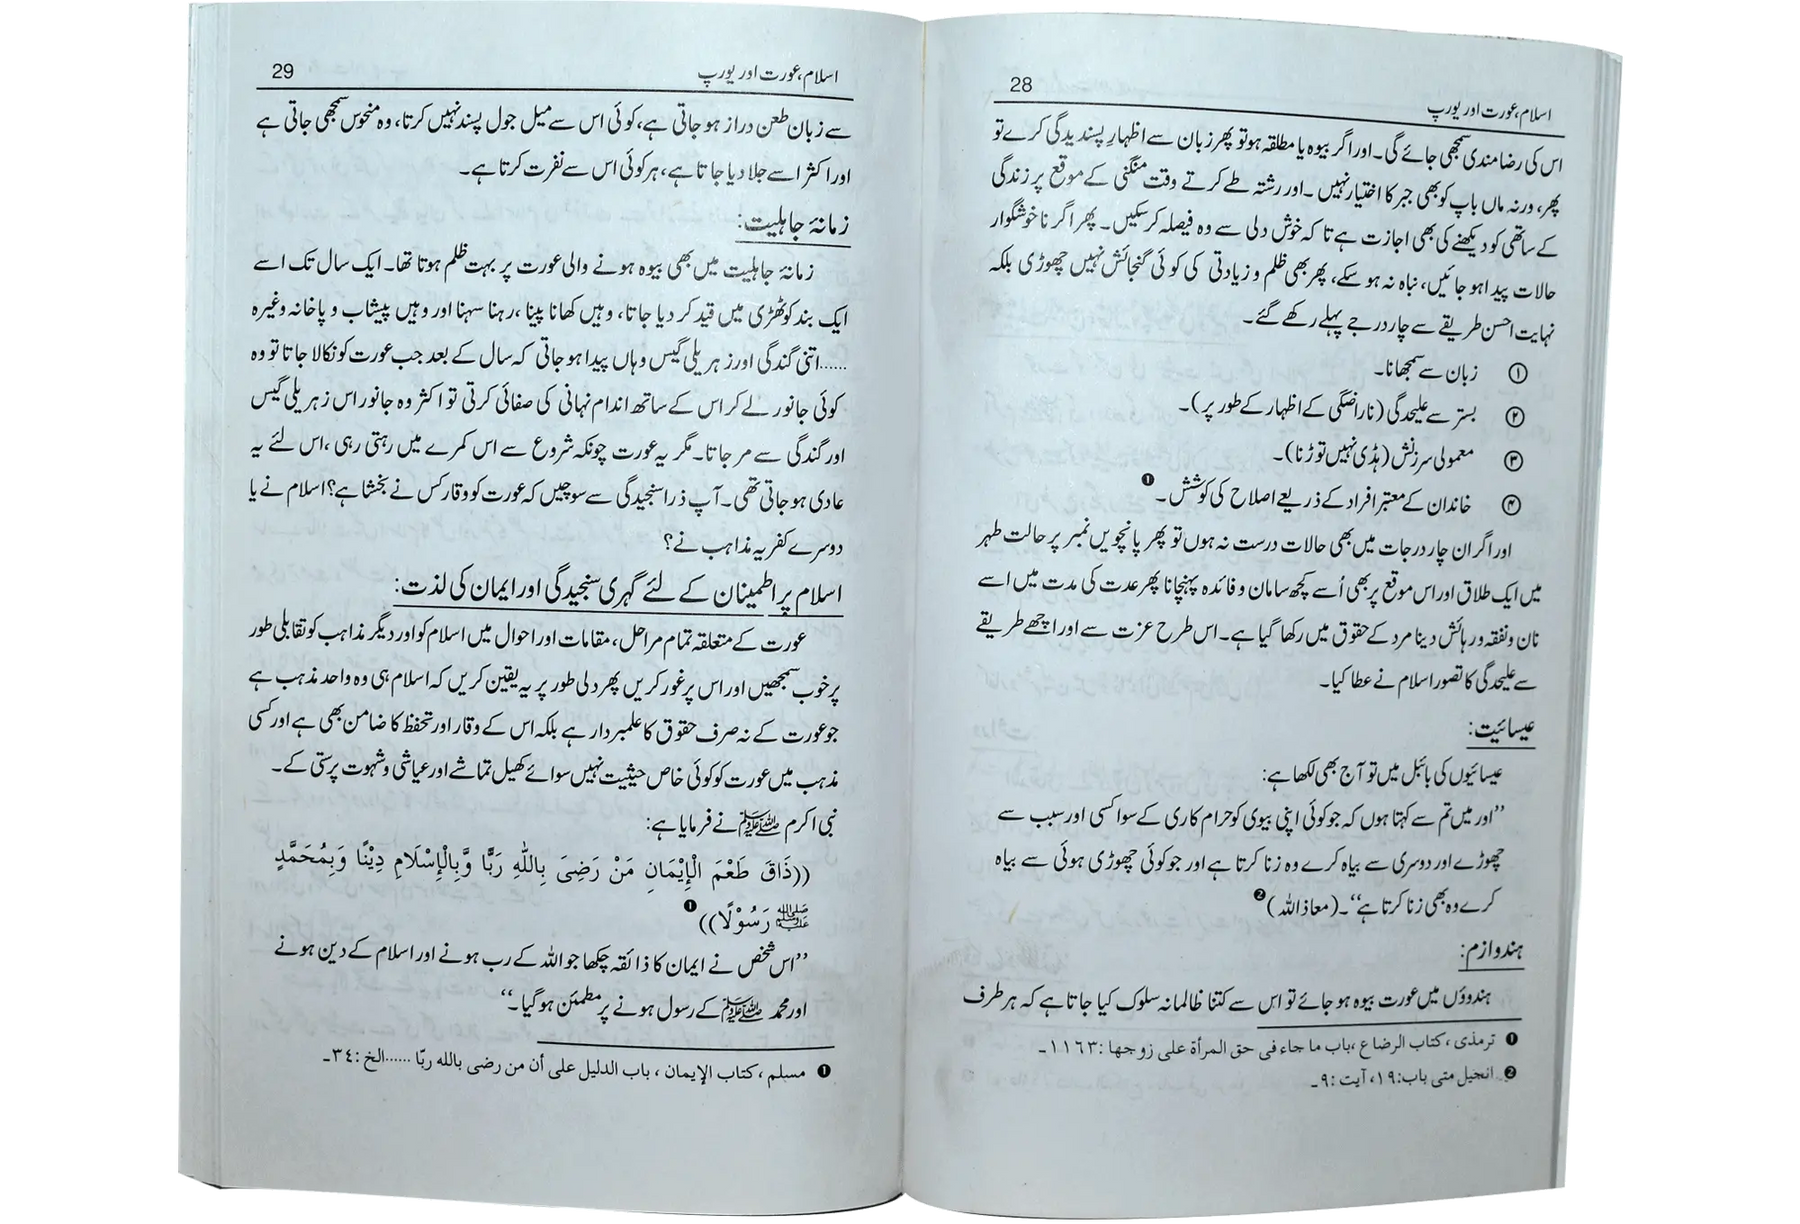 28
اسلام، عورت اور یورپ
اس کی رضا مندی سمجھی جائے گی۔ اور اگر بیوہ یا مطلقہ ہو تو پھر زبان سے اظہارِ پسندیدگی کرے تو
پھر، ورنہ ماں باپ کو بھی جبر کا اختیار نہیں۔ اور رشتہ طے کرتے وقت منگنی کے موقع پر زندگی
کے ساتھی کو دیکھنے کی بھی اجازت ہے تاکہ خوش دلی سے وہ فیصلہ کر سکیں۔ پھر اگر ناخوشگوار
حالات پیدا ہو جائیں، نباہ نہ ہو سکے، پھر بھی ظلم و زیادتی کی کوئی گنجائش نہیں چھوڑی بلکہ
نہایت احسن طریقے سے چار درجے پہلے رکھے گئے۔
① زبان سے سمجھانا۔
② بستر سے علیحدگی (ناراضگی کے اظہار کے طور پر)۔
③ معمولی سرزنش (ہڈی نہیں توڑنا)۔
④ خاندان کے معتبر افراد کے ذریعے اصلاح کی کوشش۔ ❶
اور اگر ان چار درجات میں بھی حالات درست نہ ہوں تو پھر پانچویں نمبر پر حالت طہر
میں ایک طلاق اور اس موقع پر بھی اُسے کچھ سامان و فائدہ پہنچانا پھر عدت کی مدت میں اسے
نان و نفقہ و رہائش دینا مرد کے حقوق میں رکھا گیا ہے۔ اس طرح عزت سے اور اچھے طریقے
سے علیحدگی کا تصور اسلام نے عطا کیا۔
عیسائیت:
عیسائیوں کی بائبل میں تو آج بھی لکھا ہے:
’’اور میں تم سے کہتا ہوں کہ جو کوئی اپنی بیوی کو حرام کاری کے سوا کسی اور سبب سے
چھوڑے اور دوسری سے بیاہ کرے وہ زنا کرتا ہے اور جو کوئی چھوڑی ہوئی سے بیاہ
کرے وہ بھی زنا کرتا ہے‘‘۔ (معاذ اللہ) ❷
ہندوازم:
ہندوؤں میں عورت بیوہ ہو جائے تو اس سے کتنا ظالمانہ سلوک کیا جاتا ہے کہ ہر طرف
❶ ترمذی، کتاب الرضاع، باب ما جاء فی حق المرأة علی زوجها: ١١٦٣۔
❷ انجیل متی باب: ١٩، آیت: ٩۔
29
اسلام، عورت اور یورپ
سے زبان طعن دراز ہو جاتی ہے، کوئی اس سے میل جول پسند نہیں کرتا، وہ منحوس سمجھی جاتی ہے
اور اکثر اسے جلا دیا جاتا ہے، ہر کوئی اس سے نفرت کرتا ہے۔
زمانۂ جاہلیت:
زمانۂ جاہلیت میں بھی بیوہ ہونے والی عورت پر بہت ظلم ہوتا تھا۔ ایک سال تک اسے
ایک بند کوٹھڑی میں قید کر دیا جاتا، وہیں کھانا پینا، رہنا سہنا اور وہیں پیشاب و پاخانہ وغیرہ
......اتنی گندگی اور زہریلی گیس وہاں پیدا ہو جاتی کہ سال کے بعد جب عورت کو نکالا جاتا تو وہ
کوئی جانور لے کر اس کے ساتھ اندام نہانی کی صفائی کرتی تو اکثر وہ جانور اس زہریلی گیس
اور گندگی سے مر جاتا۔ مگر یہ عورت چونکہ شروع سے اس کمرے میں رہتی رہی، اس لئے یہ
عادی ہو جاتی تھی۔ آپ ذرا سنجیدگی سے سوچیں کہ عورت کو وقار کس نے بخشا ہے؟ اسلام نے یا
دوسرے کفریہ مذاہب نے؟
اسلام پر اطمینان کے لئے گہری سنجیدگی اور ایمان کی لذت:
عورت کے متعلقہ تمام مراحل، مقامات اور احوال میں اسلام کو اور دیگر مذاہب کو تقابلی طور
پر خوب سمجھیں اور اس پر غور کریں پھر دلی طور پر یہ یقین کریں کہ اسلام ہی وہ واحد مذہب ہے
جو عورت کے نہ صرف حقوق کا علمبردار ہے بلکہ اس کے وقار اور تحفظ کا ضامن بھی ہے اور کسی
مذہب میں عورت کو کوئی خاص حیثیت نہیں سوائے کھیل تماشے اور عیاشی و شہوت پرستی کے۔
نبی اکرم ﷺ نے فرمایا ہے:
((ذَاقَ طَعْمَ الْإِيْمَانِ مَنْ رَضِيَ بِاللّٰهِ رَبًّا وَّبِالْإِسْلَامِ دِيْنًا وَبِمُحَمَّدٍ
ﷺ رَسُوْلًا)) ❶
’’اس شخص نے ایمان کا ذائقہ چکھا جو اللہ کے رب ہونے اور اسلام کے دین ہونے
اور محمد ﷺ کے رسول ہونے پر مطمئن ہو گیا۔‘‘
❶ مسلم، کتاب الإیمان، باب الدلیل علی أن من رضی بالله ربّا......الخ: ٣٤۔